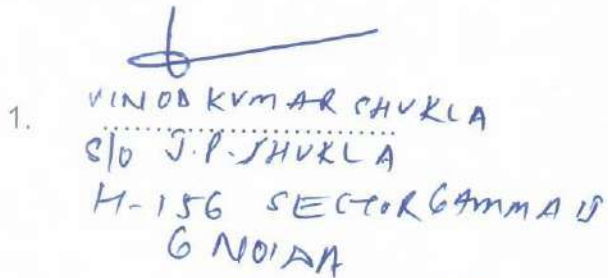 1. VINOD KUMAR SHUKLA
S/O J.P. SHUKLA
H-156 SECTOR GAMMA II
G NOIDA